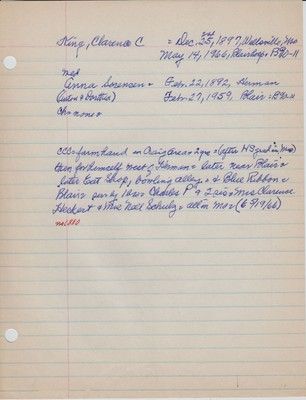 King, Clarence C = Dec. 25, 1897, Wellsville, Mo
May 14, 1966, Blair
md
Anna Sorensen = Feb. 22, 1892, Herman
(Anton & Dorthea) Feb. 27, 1959, Blair =
ch = none =
CCC = farm hand in Craig area = 2 yrs = (after HS grad in Mo)
then for himself west of Herman = later near Blair =
later Boat Shop, bowling alley = & Blue Ribbon =
Blair = sur by 1 bro Charles & 2 sis = Mrs Clarence
Heckert & Mrs Nell Schulz = all in Mo = (5/19/66)